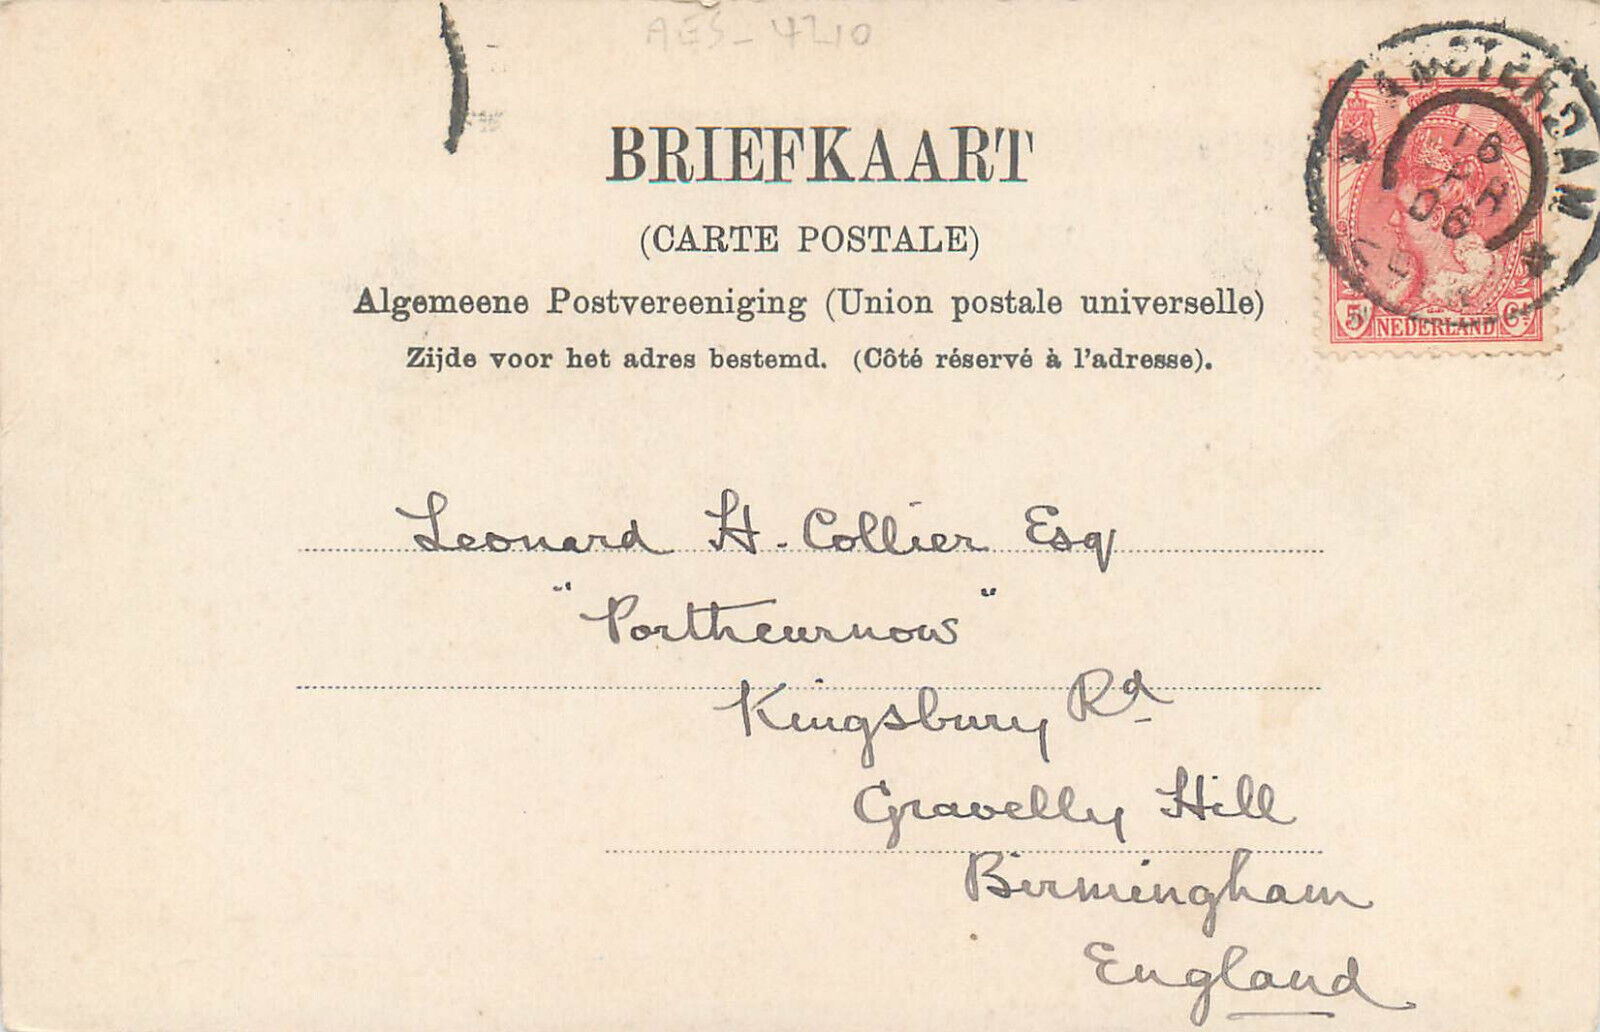 AES - 4210
BRIEFKAART
(CARTE POSTALE)
Algemeene Postvereeniging (Union postale universelle)
Zijde voor het adres bestemd. (Côté réservé à l'adresse).
AMSTERDAM
16
06
5ct NEDERLAND Ct
Leonard H. Collier Esq
"Porthcurnow"
Kingsbury Rd
Gravelly Hill
Birmingham
England